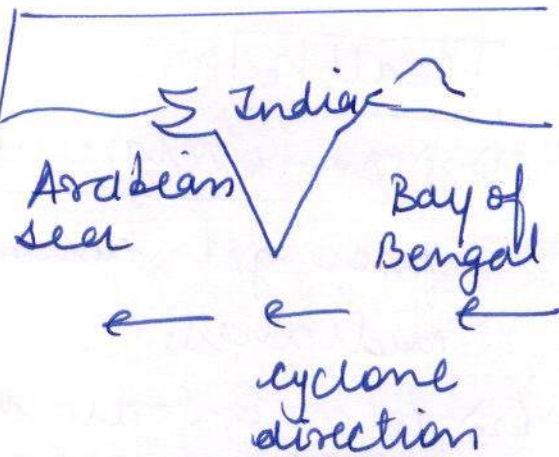 India
Arabian
sea
Bay of
Bengal
cyclone
direction